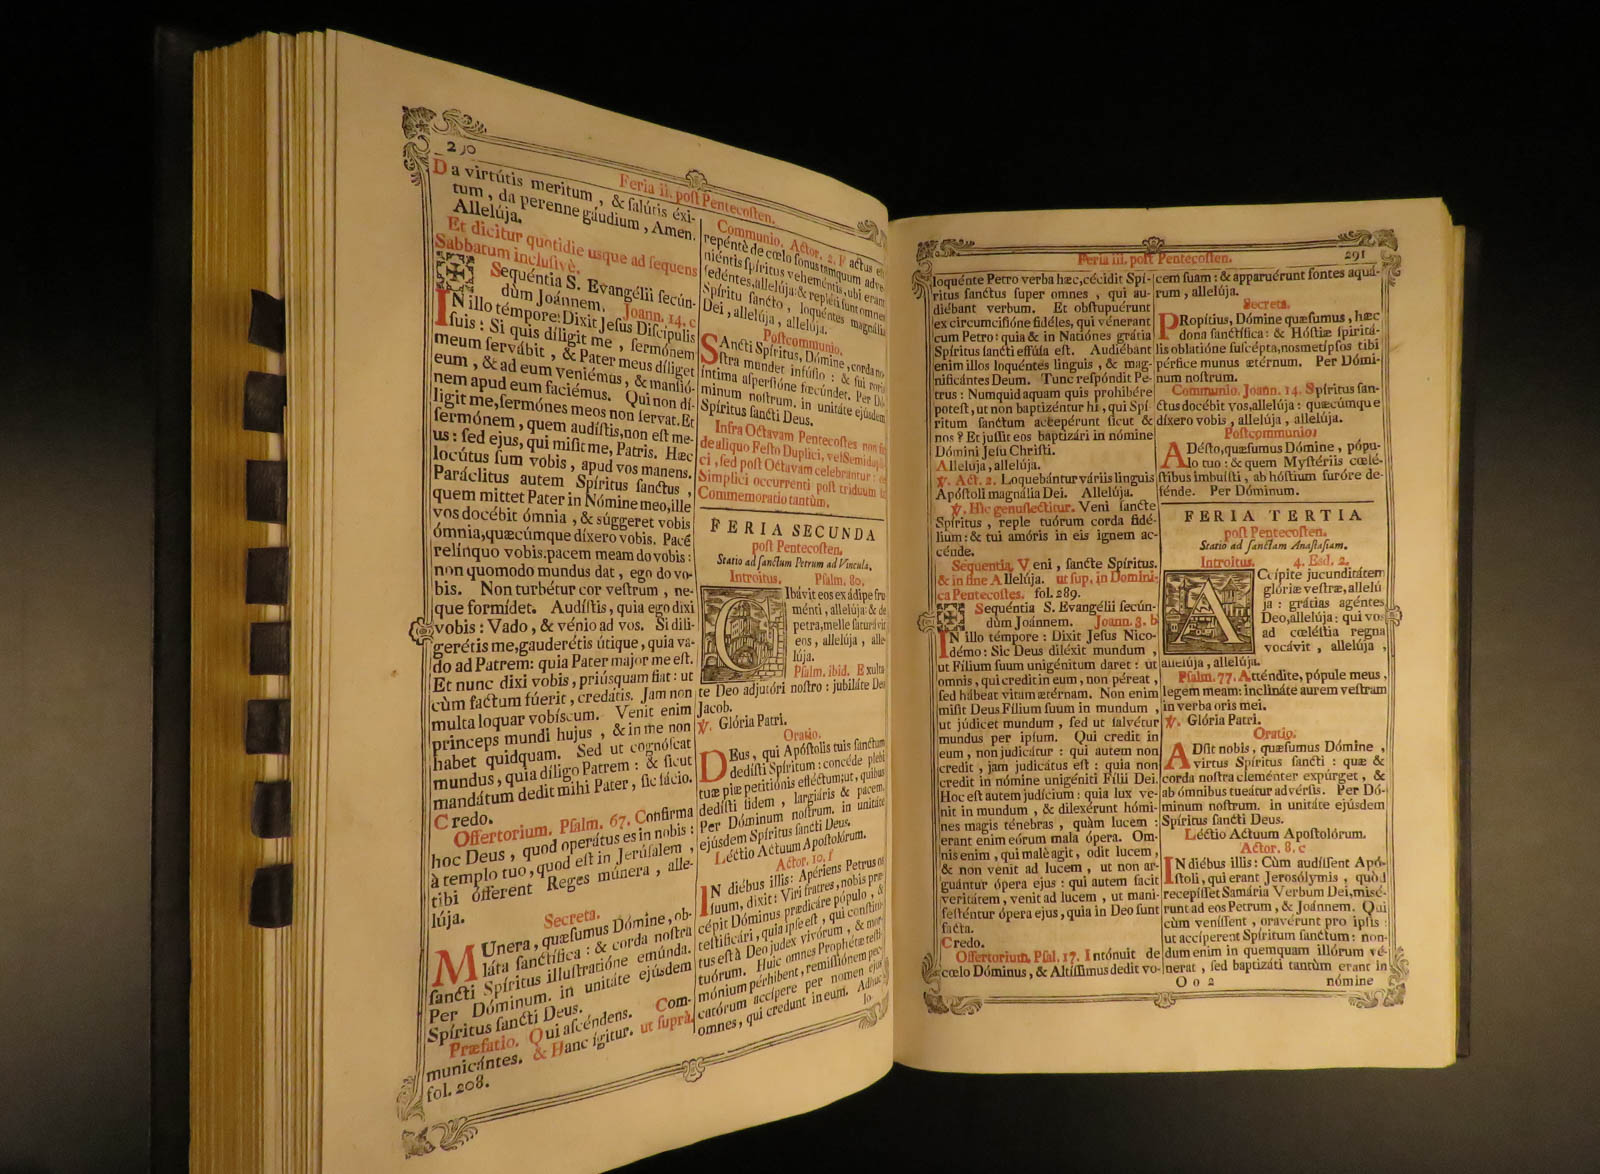 290
Feria ii. poſt Pentecoſten.
Da virtútis meritum, & ſalútis éxi-
tum, da perenne gáudium, Amen.
Allelúja.
Et dicitur quotidie usque ad ſequens
Sabbatum incluſivè.
Sequéntia S. Evangélii ſecún-
dùm Joánnem. Joann. 14. c
IN illo témpore: Dixit Jeſus Diſcípulis
ſuis: Si quis díligit me, ſermónem
meum ſervábit, & Pater meus díliget
eum, & ad eum veniémus, & manſió-
nem apud eum faciémus. Qui non dí-
ligit me, ſermónes meos non ſervat. Et
ſermónem, quem audíſtis, non eſt me-
us: ſed ejus, qui miſit me, Patris. Hæc
locútus ſum vobis, apud vos manens.
Paráclitus autem Spíritus ſanctus,
quem mittet Pater in Nómine meo, ille
vos docébit ómnia, & súggeret vobis
ómnia, quæcúmque díxero vobis. Pacé
relínquo vobis. pacem meam do vobis:
non quomodo mundus dat, ego do vo-
bis. Non turbétur cor veſtrum, ne-
que formídet. Audíſtis, quia ego dixi
vobis: Vado, & vénio ad vos. Si dili-
gerétis me, gauderétis útique, quia va-
do ad Patrem: quia Pater major me eſt.
Et nunc dixi vobis, priúsquam fiat: ut
cùm factum fúerit, credátis. Jam non
multa loquar vobíscum. Venit enim
princeps mundi hujus, & in me non
habet quidquam. Sed ut cognóſcat
mundus, quia díligo Patrem: & ſicut
mandátum dedit mihi Pater, ſic fácio.
Credo.
Offertorium. Pſalm. 67. Confirma
hoc Deus, quod operátus es in nobis:
à templo tuo, quod eſt in Jerúſalem,
tibi ófferent Reges múnera, alle-
lúja.
Secreta.
MUnera, quæſumus Dómine, ob-
láta ſanctífica: & corda noſtra
ſancti Spíritus illuſtratióne emúnda.
Per Dóminum. in unitáte ejúsdem
Spíritus ſancti Deus.
Præfatio. Qui aſcéndens. Com-
municántes. & Hanc ígitur. ut ſuprà.
fol. 208.
Communio. Actor. 2. Factus eſt
repéntè de cœlo ſonus tamquam adve-
niéntis ſpíritus veheméntis, ubi erant
ſedéntes, allelúja: & repléti ſunt omnes
Spíritu ſancto, loquéntes magnália
Dei, allelúja, allelúja.
Poſtcommunio.
SAncti Spíritus, Dómine, corda no-
ſtra mundet infúſio: & ſui roris
íntima aſperſióne fœcúndet. Per Dó-
minum noſtrum. in unitáte ejúsdem
Spíritus ſancti Deus.
Infra Octavam Pentecoſtes non fit
de aliquo Feſto Duplici, vel Semidupli-
ci, ſed poſt Octavam celebrantur: de
Simplici occurrenti poſt triduum fit
Commemoratio tantùm.
FERIA SECUNDA
poſt Pentecoſten.
Statio ad ſanctum Petrum ad Vincula.
Introitus. Pſalm. 80.
CIbávit eos ex ádipe fru-
ménti, allelúja: & de
petra, melle ſaturávit
eos, allelúja, alle-
lúja.
Pſalm. ibid. Exulta-
te Deo adjutóri noſtro: jubiláte Deo
Jacob.
℣. Glória Patri.
Oratio.
DEus, qui Apóſtolis tuis ſanctum
dedíſti Spíritum: concéde plebi
tuæ piæ petitiónis efféctum; ut, quibus
dedíſti fidem, largiáris & pacem.
Per Dóminum noſtrum. in unitáte
ejúsdem Spíritus ſancti Deus.
Léctio Actuum Apoſtolórum.
Actor. 10. f
IN diébus illis: Apériens Petrus os
ſuum, dixit: Viri fratres, nobis præ-
cépit Dóminus prædicáre pópulo, &
teſtificári, quia ipſe eſt, qui conſtitú-
tus eſt à Deo judex vivórum, & mor-
tuórum. Huic omnes Prophétæ teſti-
mónium pérhibent, remiſſiónem pec-
catórum accípere per nomen ejus
omnes, qui credunt in eum. Adhuc
lo
Feria iii. poſt Pentecoſten.
291
loquénte Petro verba hæc, cécidit Spí-
ritus ſanctus ſuper omnes, qui au-
diébant verbum. Et obſtupuérunt
ex circumciſióne fidéles, qui vénerant
cum Petro: quia & in Natiónes grátia
Spíritus ſancti effúſa eſt. Audiébant
enim illos loquéntes linguis, & mag-
nificántes Deum. Tunc reſpóndit Pe-
trus: Numquid aquam quis prohibére
poteſt, ut non baptizéntur hi, qui Spí-
ritum ſanctum accepérunt ſicut &
nos? Et juſſit eos baptizári in nómine
Dómini Jeſu Chriſti.
Allelúja, allelúja.
℣. Act. 2. Loquebántur váriis linguis
Apóſtoli magnália Dei. Allelúja.
℣. Hic genuflectitur. Veni ſancte
Spíritus, reple tuórum corda fidé-
lium: & tui amóris in eis ignem ac-
cénde.
Sequentia, Veni, ſancte Spíritus.
& in fine Allelúja. ut ſup. in Domini-
ca Pentecoſtes. fol. 289.
Sequéntia S. Evangélii ſecún-
dùm Joánnem. Joann. 3. b
IN illo témpore: Dixit Jeſus Nico-
démo: Sic Deus diléxit mundum,
ut Fílium ſuum unigénitum daret: ut
omnis, qui credit in eum, non péreat,
ſed hábeat vitam ætérnam. Non enim
miſit Deus Fílium ſuum in mundum,
ut júdicet mundum, ſed ut ſalvétur
mundus per ipſum. Qui credit in
eum, non judicátur: qui autem non
credit, jam judicátus eſt: quia non
credit in nómine unigéniti Fílii Dei.
Hoc eſt autem judícium: quia lux ve-
nit in mundum, & dilexérunt hómi-
nes magis ténebras, quàm lucem:
erant enim eórum mala ópera. Om-
nis enim, qui malè agit, odit lucem,
& non venit ad lucem, ut non ar-
guántur ópera ejus: qui autem facit
veritátem, venit ad lucem, ut mani-
feſténtur ópera ejus, quia in Deo ſunt
facta.
Credo.
Offertorium. Pſal. 17. Intónuit de
cœlo Dóminus, & Altíſſimus dedit vo-
cem ſuam: & apparuérunt fontes aquá-
rum, allelúja.
Secreta.
PRopítius, Dómine quæſumus, hæc
dona ſanctífica: & Hóſtiæ ſpiritá-
lis oblatióne ſuſcépta, nosmetípſos tibi
pérfice munus ætérnum. Per Dómi-
num noſtrum.
Communio. Joann. 14. Spíritus ſan-
ctus docébit vos, allelúja: quæcúmque
díxero vobis, allelúja, allelúja.
Poſtcommunio:
ADéſto, quæſumus Dómine, pópu-
lo tuo: & quem Myſtériis cœlé-
ſtibus imbuíſti, ab hóſtium furóre de-
fénde. Per Dóminum.
FERIA TERTIA
poſt Pentecoſten.
Statio ad ſanctam Anaſtaſiam.
Introitus. 4. Eſd. 2.
ACcípite jucunditátem
glóriæ veſtræ, allelú-
ja: grátias agéntes
Deo, allelúja: qui vos
ad cœléſtia regna
vocávit, allelúja,
allelúja, allelúja.
Pſalm. 77. Atténdite, pópule meus,
legem meam: inclináte aurem veſtram
in verba oris mei.
℣. Glória Patri.
Oratio.
ADſit nobis, quæſumus Dómine,
virtus Spíritus ſancti: quæ &
corda noſtra cleménter expúrget, &
ab ómnibus tueátur advérſis. Per Dó-
minum noſtrum. in unitáte ejúsdem
Spíritus ſancti Deus.
Léctio Actuum Apoſtolórum.
Actor. 8. c
IN diébus illis: Cùm audíſſent Apó-
ſtoli, qui erant Jeroſólymis, quòd
recepíſſet Samária Verbum Dei, miſé-
runt ad eos Petrum, & Joánnem. Qui
cùm veníſſent, oravérunt pro ipſis:
ut accíperent Spíritum ſanctum: non-
dum enim in quemquam illórum vé-
nerat, ſed baptizáti tantùm erant in
Oo 2
nómine